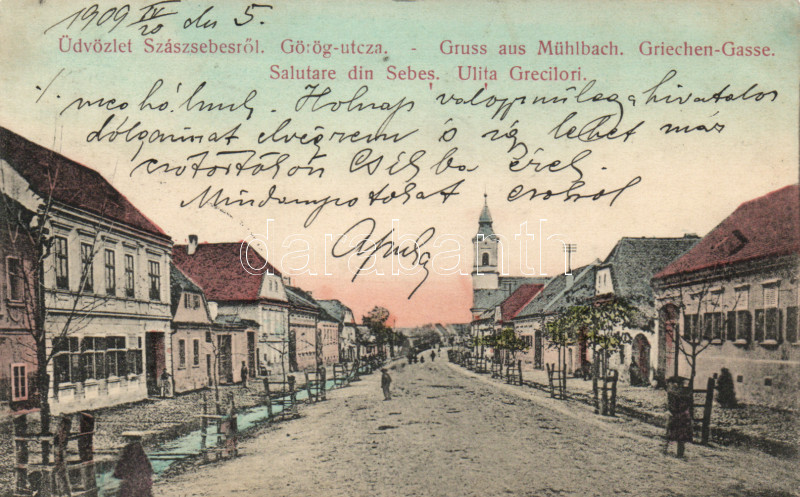 1909 IV/20 du 5.
Üdvözlet Szászsebesről. Görög-utcza. - Gruss aus Mühlbach. Griechen-Gasse.
Salutare din Sebeș. Ulița Grecilori.
Holnap valószinüleg a hivatalos
dolgaimat elvégzem és így lehet már
csütörtökön Csikba érek.
Mindannyiotokat csókol
Apuka
darabanth